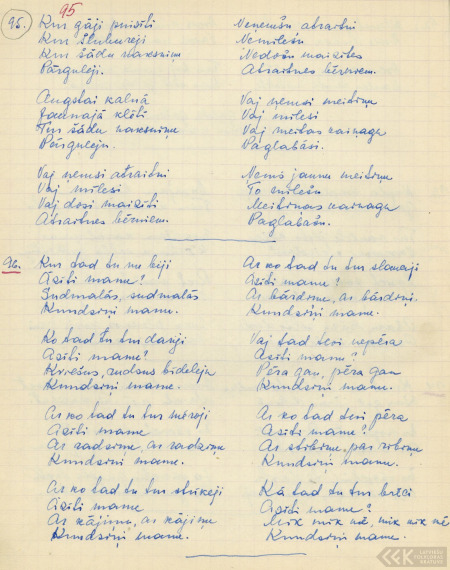 95
95.
Kur gāji puisīti
Kur
Kur šādu naksniņu
Pārgulēji.
Augstai kalnā
Jaunajā klētī
Tur šādu naksniņu
Pārgulēju.
Vaj ņemsi atraitni
Vaj mīlesi
Vaj dosi maizīti
Atraitnes bērniem.
Neņemšu atraitni
Nemīlešu
Nedošu maizītes
Atraitnes bērniem.
Vaj ņemsi meitiņu
Vaj mīlesi
Vaj meitas vainagu
Paglabāsi.
Ņemš jaunu meitiņu
To mīlešu
Meitiņas vainagu
Paglabāšu.
96.
Kur tad tu nu biji
Āzīti mame?
Sudmalās, sudmalās
Kundziņi mame.
Ko tad tu tur darīji
Āzīti mame?
Kviešus, rudzus bīdelēju
Kundziņi mame.
Ar ko tad tu tur mēroji
Āzīti mame
Ar radziņu, ar radziņu
Kundziņi mame.
Ar ko tad tu tur
Āzīti mame
Ar kājiņu, ar kājiņu
Kundziņi mame.
Ar ko tad tu tur slaucīji
Āzīti mame?
Ar bārdiņu, ar bārdiņu
Kundziņi mame.
Vaj tad tevi nepēra
Āzīti mame?
Pēra gan, pēra gan
Kundziņi mame.
Ar ko tad tevi pēra
Āzīti mame?
Ar stibiņu, par ribiņu
Kundziņi mame.
Kā tad tu tur brēci
Āzīti mame?
Mik mik nē, mik mik nē
Kundziņi mame.
LATVIEŠU
FOLKLORAS
KRĀTUVE